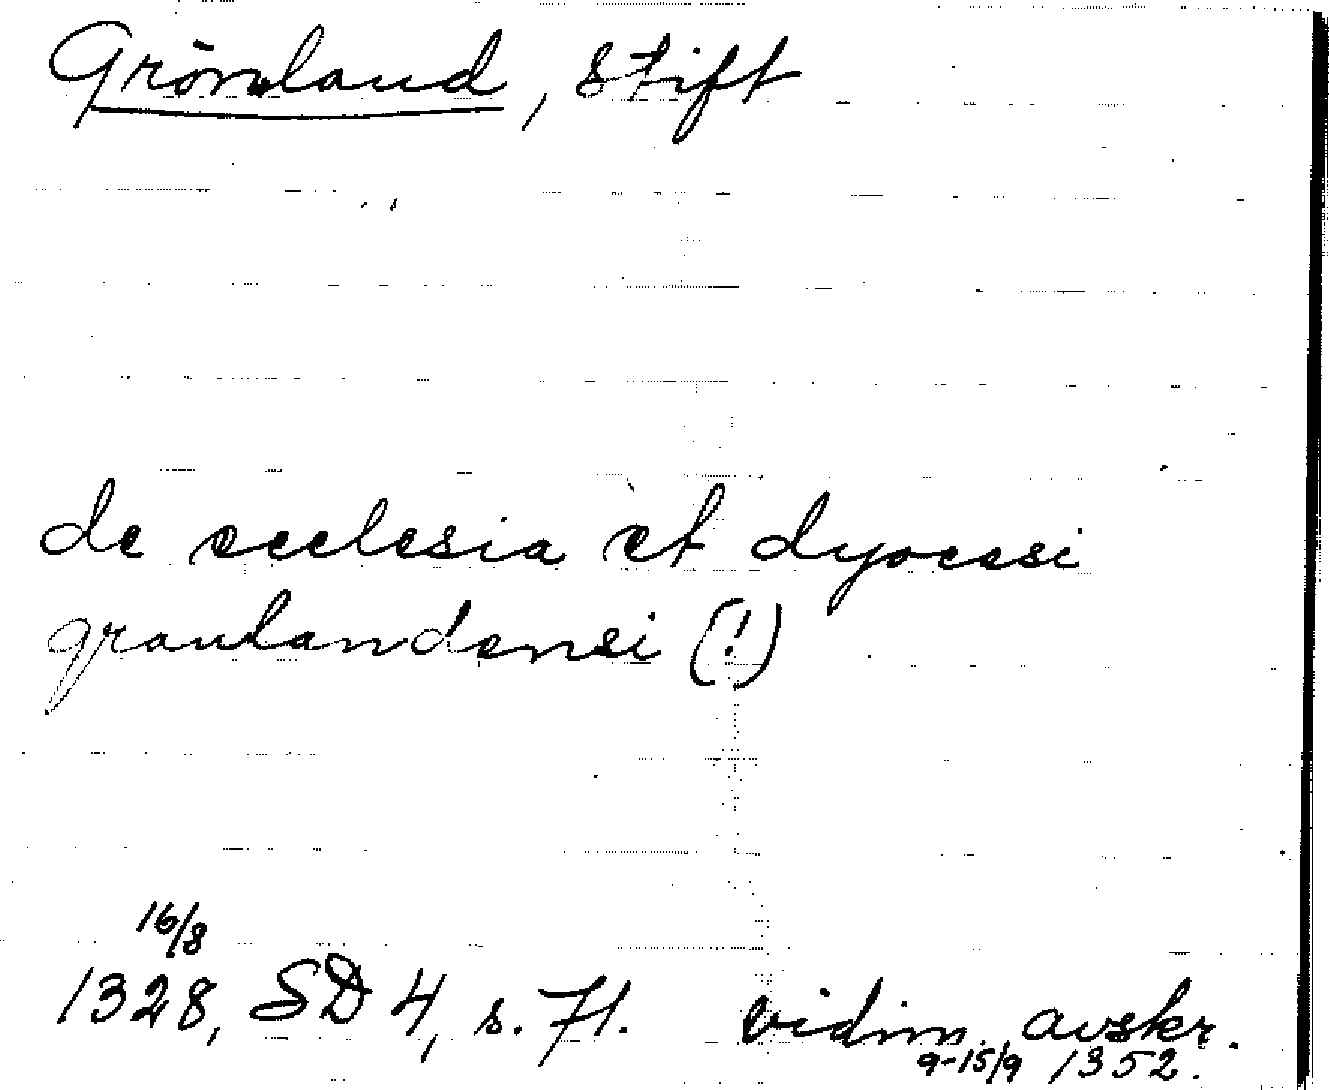 Grönland, stift
de ecclesia et dyocesi
graulandensi (!)
16/8
1328, SD 4, s. 71. vidim. avskr.
9-15/9 1352.